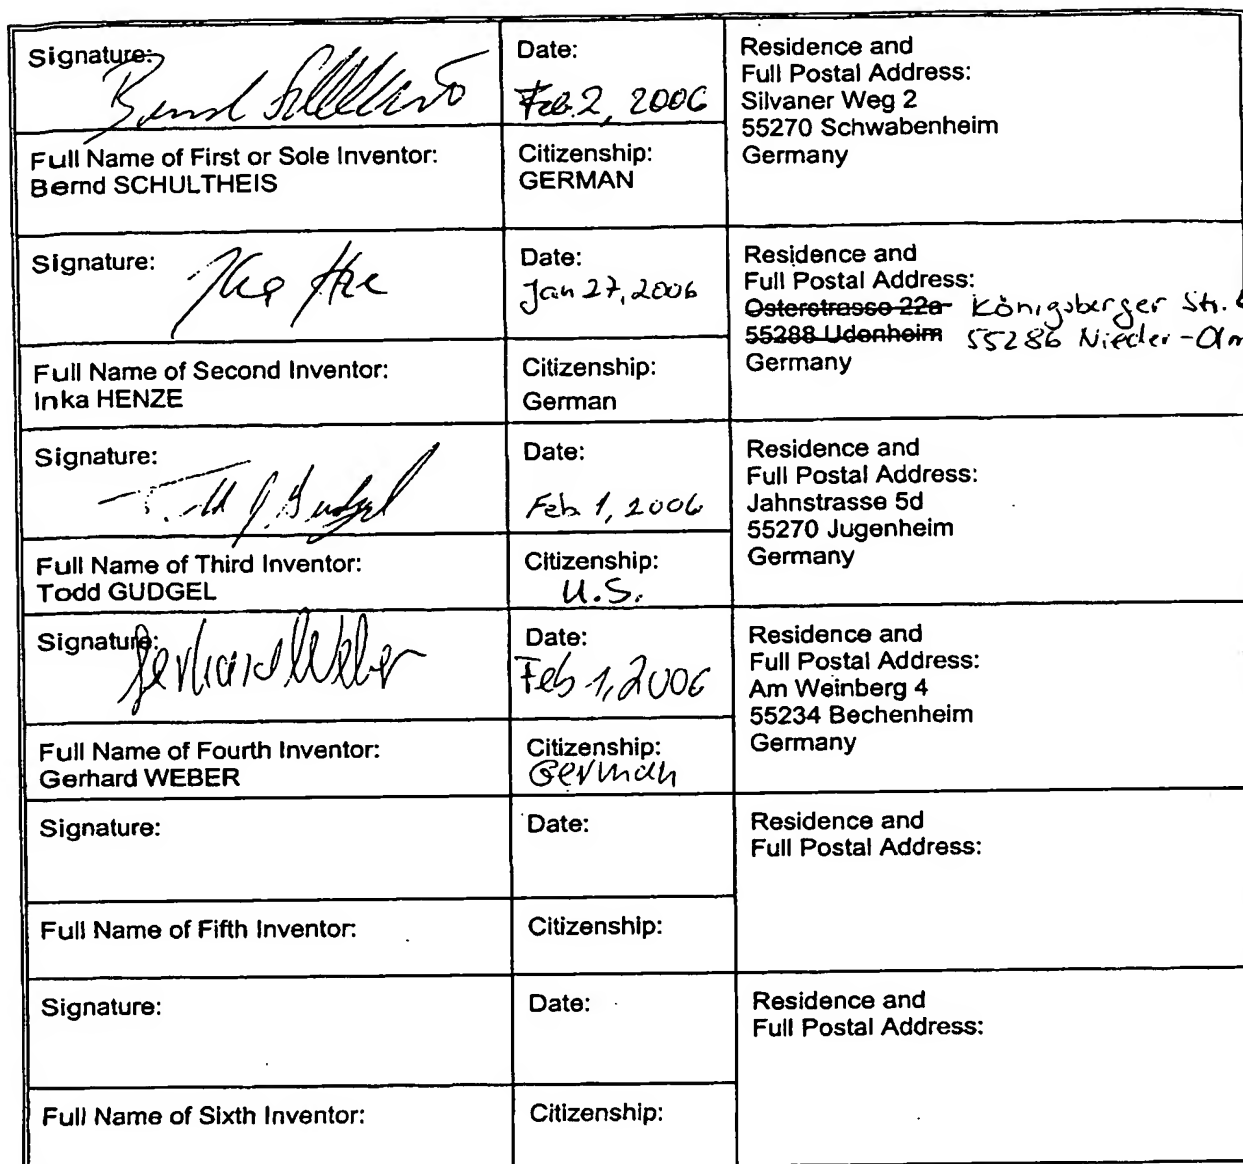 Signature:
Bernd Schultheis
Date:
Feb. 2, 2006
Residence and
Full Postal Address:
Silvaner Weg 2
55270 Schwabenheim
Germany
Full Name of First or Sole Inventor:
Bernd SCHULTHEIS
Citizenship:
GERMAN
Signature:
Date:
Jan 27, 2006
Residence and
Full Postal Address:
Osterstrasse 22a Königsberger Str.
55288 Udenheim 55286 Nieder-Olm
Germany
Full Name of Second Inventor:
Inka HENZE
Citizenship:
German
Signature:
Todd J. Gudgel
Date:
Feb. 1, 2006
Residence and
Full Postal Address:
Jahnstrasse 5d
55270 Jugenheim
Germany
Full Name of Third Inventor:
Todd GUDGEL
Citizenship:
U.S.
Signature:
Gerhard Weber
Date:
Feb 1, 2006
Residence and
Full Postal Address:
Am Weinberg 4
55234 Bechenheim
Germany
Full Name of Fourth Inventor:
Gerhard WEBER
Citizenship:
German
Signature:
Date:
Residence and
Full Postal Address:
Full Name of Fifth Inventor:
Citizenship:
Signature:
Date:
Residence and
Full Postal Address:
Full Name of Sixth Inventor:
Citizenship: